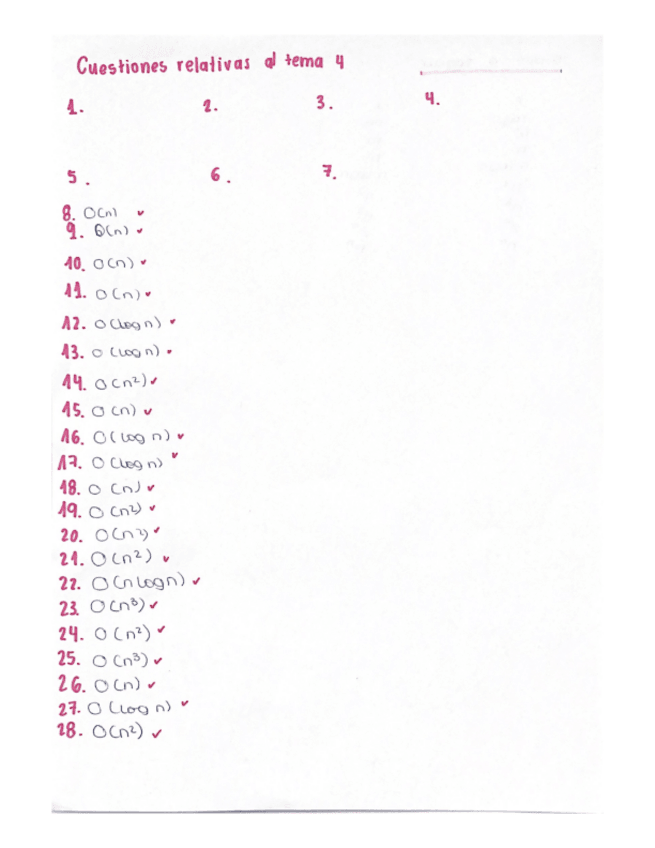 Cuestiones relativas al tema 4
1. 2. 3. 4.
5. 6. 7.
8. O(n) ✓
9. O(n) ✓
10. O(n) ✓
11. O(n) ✓
12. O(log n) ✓
13. O(log n) ✓
14. O(n²) ✓
15. O(n) ✓
16. O(log n) ✓
17. O(log n) ✓
18. O(n) ✓
19. O(n²) ✓
20. O(n²) ✓
21. O(n²) ✓
22. O(n log n) ✓
23. O(n³) ✓
24. O(n²) ✓
25. O(n³) ✓
26. O(n) ✓
27. O(log n) ✓
28. O(n²) ✓